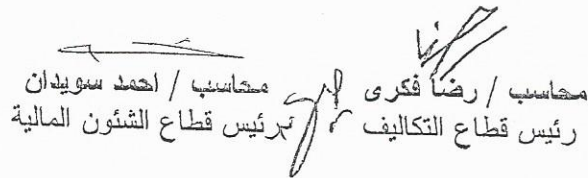 محاسب / رضا فكرى
رئيس قطاع التكاليف
محاسب / احمد سويدان
رئيس قطاع الشئون المالية